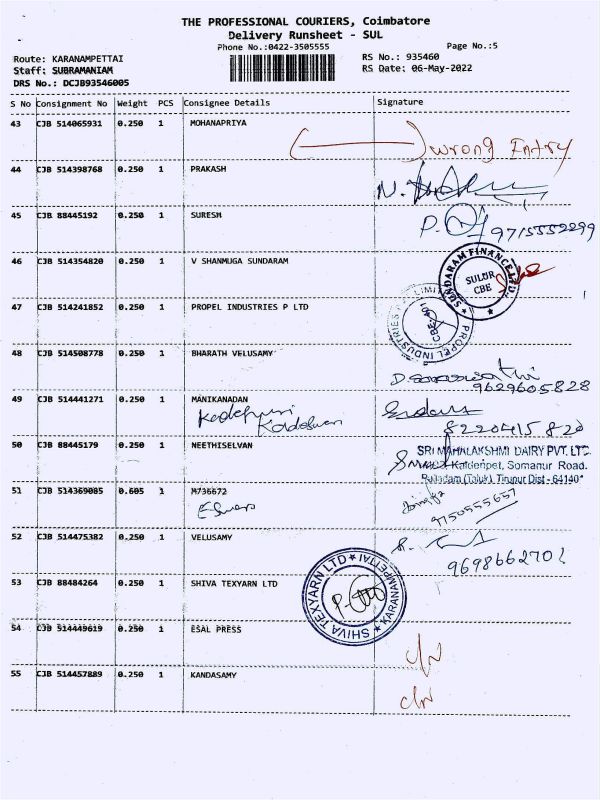 THE PROFESSIONAL COURIERS, Coimbatore
Delivery Runsheet - SUL
Phone No.:0422-3505555
Page No.:5
Route: KARANAMPETTAI
RS No.: 935460
Staff: SUBRAMANIAM
RS Date: 06-May-2022
DRS No.: DCJB93546005
S No Consignment No Weight PCS Consignee Details Signature
43 CJB 514065931 0.250 1 MOHANAPRIYA
wrong Entry
44 CJB 514398768 0.250 1 PRAKASH
45 CJB 88445192 0.250 1 SURESH
9715552299
46 CJB 514354820 0.250 1 V SHANMUGA SUNDARAM
SUNDARAM FINANCE LTD.
SULUR
CBE
47 CJB 514241852 0.250 1 PROPEL INDUSTRIES P LTD
PROPEL INDUSTRIES
48 CJB 514508778 0.250 1 BHARATH VELUSAMY
9629605828
49 CJB 514441271 0.250 1 MANIKANADAN
8220415820
50 CJB 88445179 0.250 1 NEETHISELVAN
SRI MAHALAKSHMI DAIRY PVT. LTD.
Somanur Road.
Palladam (Taluk), Tirupur Dist - 64140
51 CJB 514369085 0.605 1 M736672
9750555657
52 CJB 514475382 0.250 1 VELUSAMY
9698662702
53 CJB 88484264 0.250 1 SHIVA TEXYARN LTD
SHIVA TEXYARN LTD ★ KARANAMPETTAI ★
54 CJB 514449619 0.250 1 ESAL PRESS
55 CJB 514457889 0.250 1 KANDASAMY